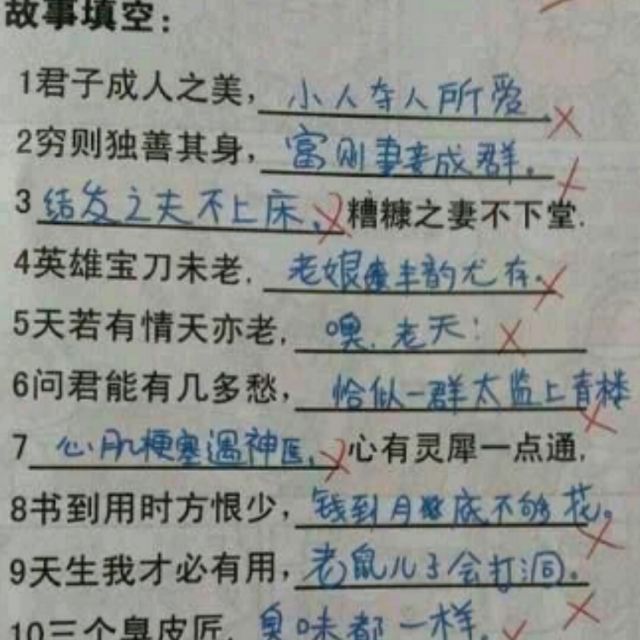 故事填空:
1君子成人之美,小人夺人所爱.
2穷则独善其身,富则妻妾成群。
3结发之夫不上床,糟糠之妻不下堂.
4英雄宝刀未老,老娘丰韵尤存.
5天若有情天亦老,噢,老天!
6问君能有几多愁,恰似一群太监上青楼
7心肌梗塞遇神医,心有灵犀一点通,
8书到用时方恨少,钱到月底不够花。
9天生我才必有用,老鼠儿子会打洞。
10三个臭皮匠,臭味都一样